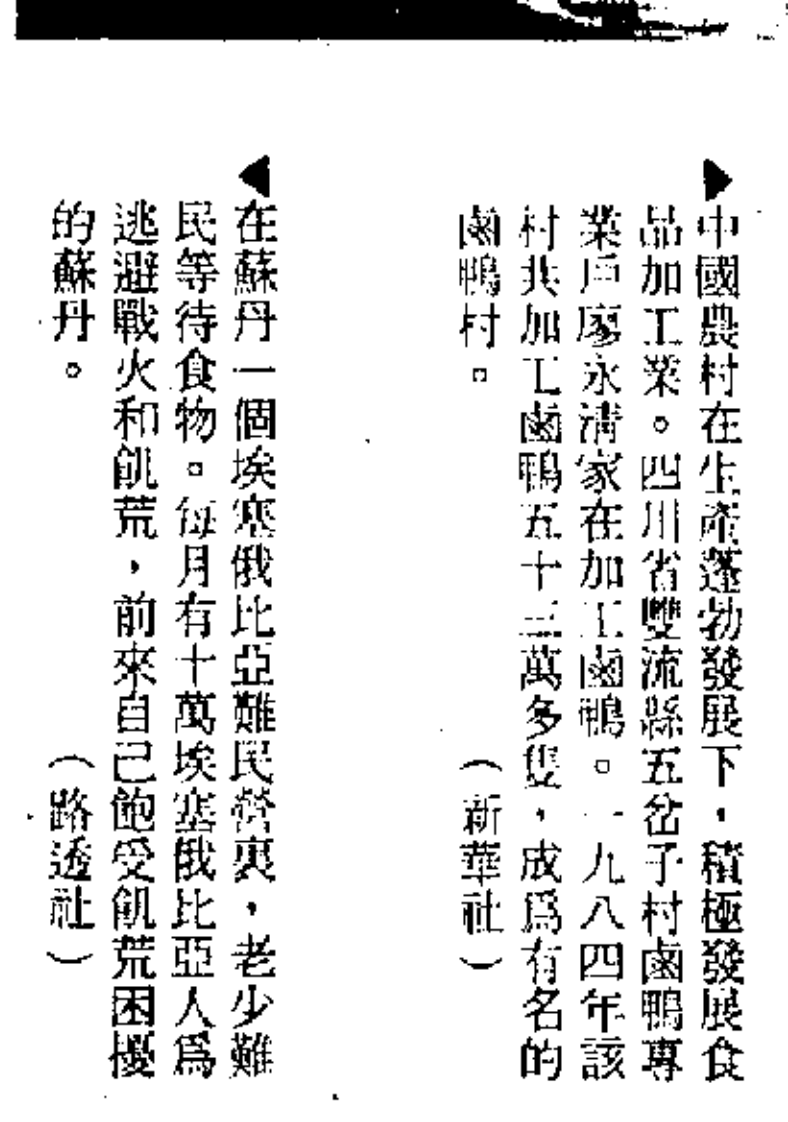 ▶中國農村在生產蓬勃發展下，積極發展食
品加工業。四川省雙流縣五岔子村鹵鴨專
業戶廖永清家在加工鹵鴨。一九八四年該
村共加工鹵鴨五十三萬多隻，成爲有名的
鹵鴨村。（新華社）
◀在蘇丹一個埃塞俄比亞難民營裏，老少難
民等待食物。每月有十萬埃塞俄比亞人爲
逃避戰火和飢荒，前來自己飽受飢荒困擾
的蘇丹。（路透社）